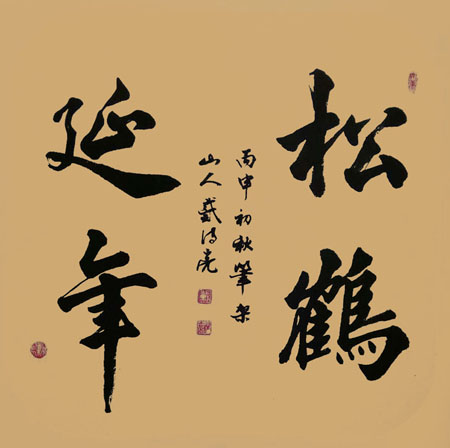 松鶴
丙申初秋筆架
山人戴亮
延年